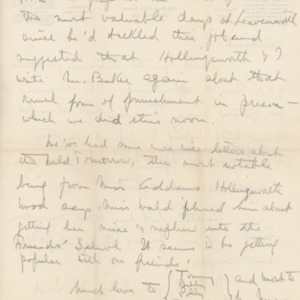 the most valuable days at Leavenworth
since he'd tackled this job and
suggested that Hollingsworth & I
write Mr. Baker again about that
form of punishment in prison —
which we did this noon.
We've had some more nice letters about
the World Tomorrow, the most notable
being from Miss Addams. Hollingsworth
Wood says Miss Wald phoned him about
getting her niece & nephew into the
Friends' School. It seems to be getting
popular with our friends!
Much love to Tommy
and most to